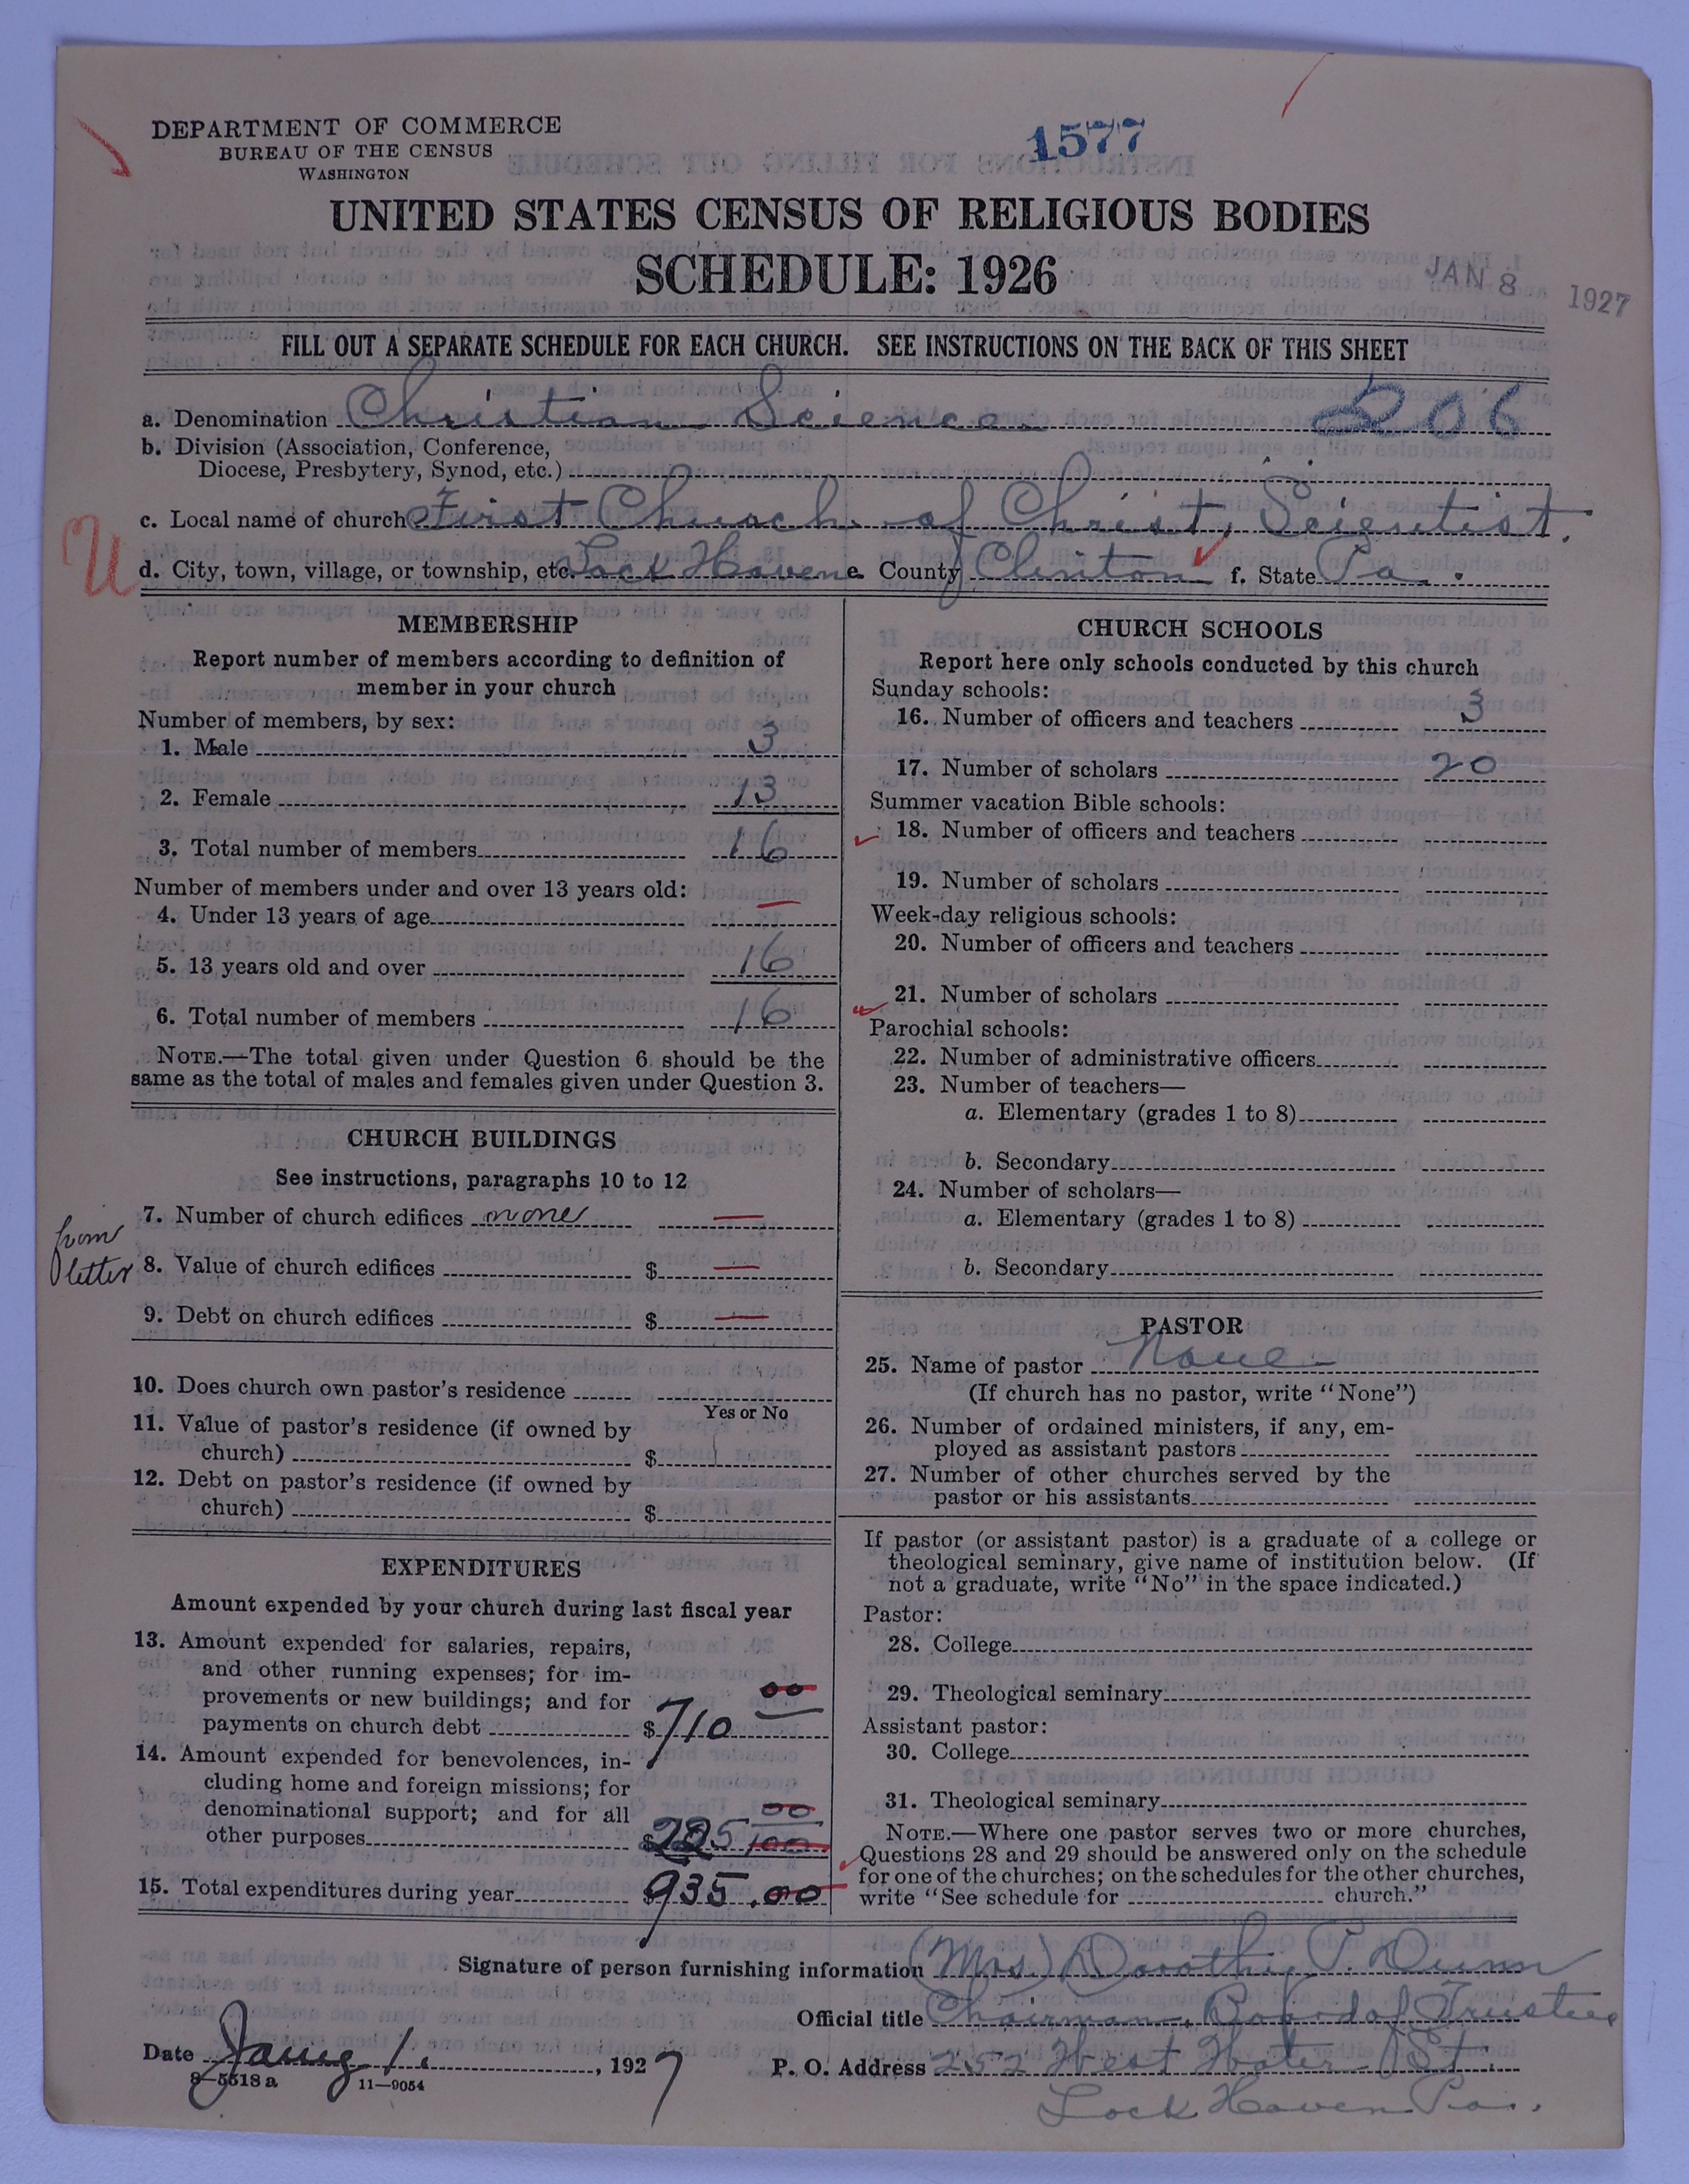 DEPARTMENT OF COMMERCE
BUREAU OF THE CENSUS
WASHINGTON
1577
UNITED STATES CENSUS OF RELIGIOUS BODIES
SCHEDULE: 1926
JAN 8 1927
FILL OUT A SEPARATE SCHEDULE FOR EACH CHURCH. SEE INSTRUCTIONS ON THE BACK OF THIS SHEET
a. Denomination Christian Science 206
b. Division (Association, Conference,
Diocese, Presbytery, Synod, etc.)
c. Local name of church First Church of Christ, Scientist.
U
d. City, town, village, or township, etc. Lock Haven e. County Clinton f. State Pa.
MEMBERSHIP
Report number of members according to definition of
member in your church
Number of members, by sex:
1. Male 3
2. Female 13
3. Total number of members 16
Number of members under and over 13 years old:
4. Under 13 years of age —
5. 13 years old and over 16
6. Total number of members 16
NOTE.—The total given under Question 6 should be the
same as the total of males and females given under Question 3.
CHURCH BUILDINGS
See instructions, paragraphs 10 to 12
7. Number of church edifices none —
from
letter
8. Value of church edifices $ —
9. Debt on church edifices $ —
10. Does church own pastor's residence
Yes or No
11. Value of pastor's residence (if owned by
church) $
12. Debt on pastor's residence (if owned by
church) $
EXPENDITURES
Amount expended by your church during last fiscal year
13. Amount expended for salaries, repairs,
and other running expenses; for im-
provements or new buildings; and for
payments on church debt $ 710 00
14. Amount expended for benevolences, in-
cluding home and foreign missions; for
denominational support; and for all
other purposes $ 225 00/100
15. Total expenditures during year $ 935.00
CHURCH SCHOOLS
Report here only schools conducted by this church
Sunday schools:
16. Number of officers and teachers 3
17. Number of scholars 20
Summer vacation Bible schools:
18. Number of officers and teachers
19. Number of scholars
Week-day religious schools:
20. Number of officers and teachers
21. Number of scholars
Parochial schools:
22. Number of administrative officers
23. Number of teachers—
a. Elementary (grades 1 to 8)
b. Secondary
24. Number of scholars—
a. Elementary (grades 1 to 8)
b. Secondary
PASTOR
25. Name of pastor None
(If church has no pastor, write "None")
26. Number of ordained ministers, if any, em-
ployed as assistant pastors
27. Number of other churches served by the
pastor or his assistants
If pastor (or assistant pastor) is a graduate of a college or
theological seminary, give name of institution below. (If
not a graduate, write "No" in the space indicated.)
Pastor:
28. College
29. Theological seminary
Assistant pastor:
30. College
31. Theological seminary
NOTE.—Where one pastor serves two or more churches,
Questions 28 and 29 should be answered only on the schedule
for one of the churches; on the schedules for the other churches,
write "See schedule for church."
Signature of person furnishing information (Mrs.) Dorothy T. Dunn
Official title Chairman, Board of Trustees
Date Jany 1, 1927 P. O. Address 252 West Water St.
8-5518 a 11-9054
Lock Haven Pa.